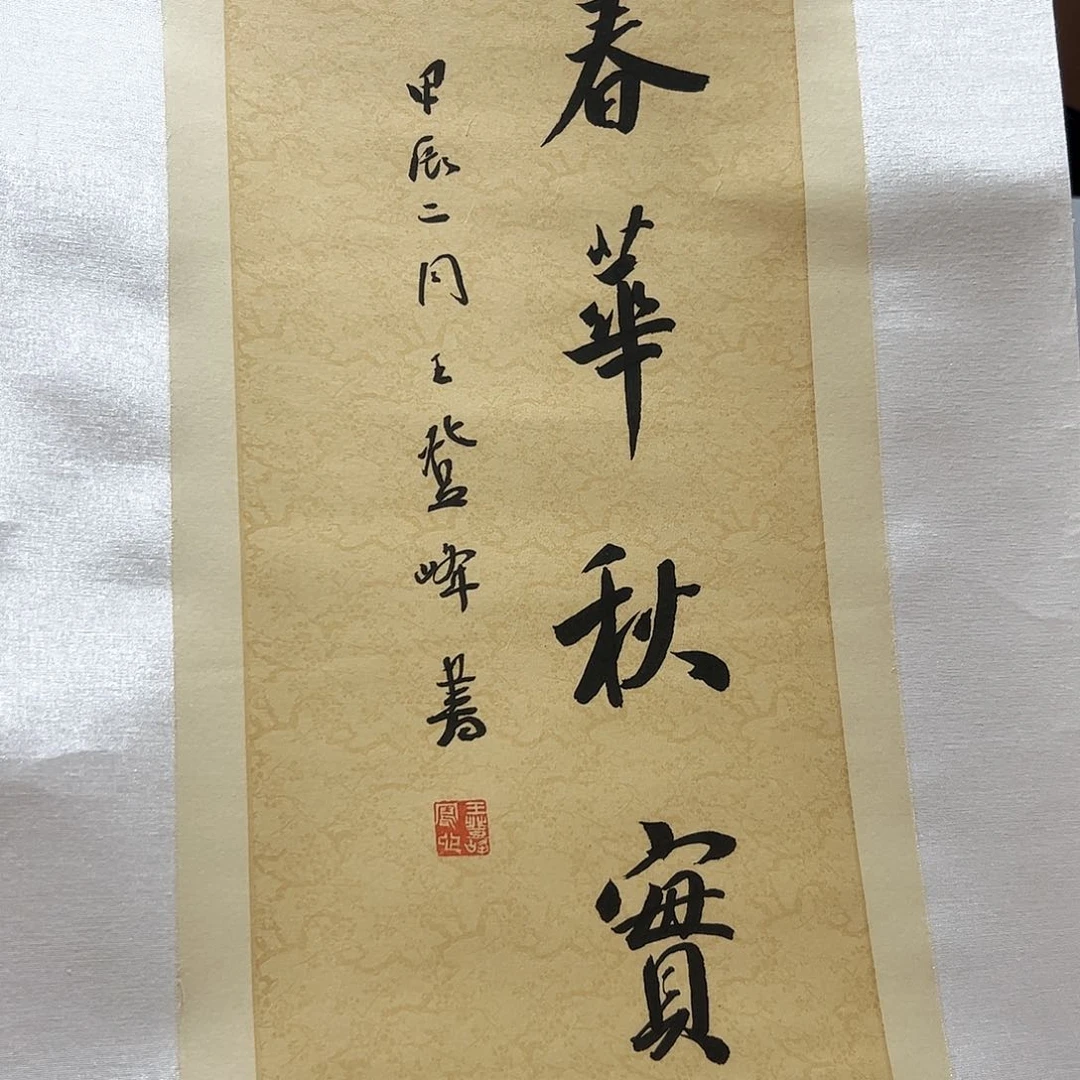 春華秋實
甲辰二月王登峰書